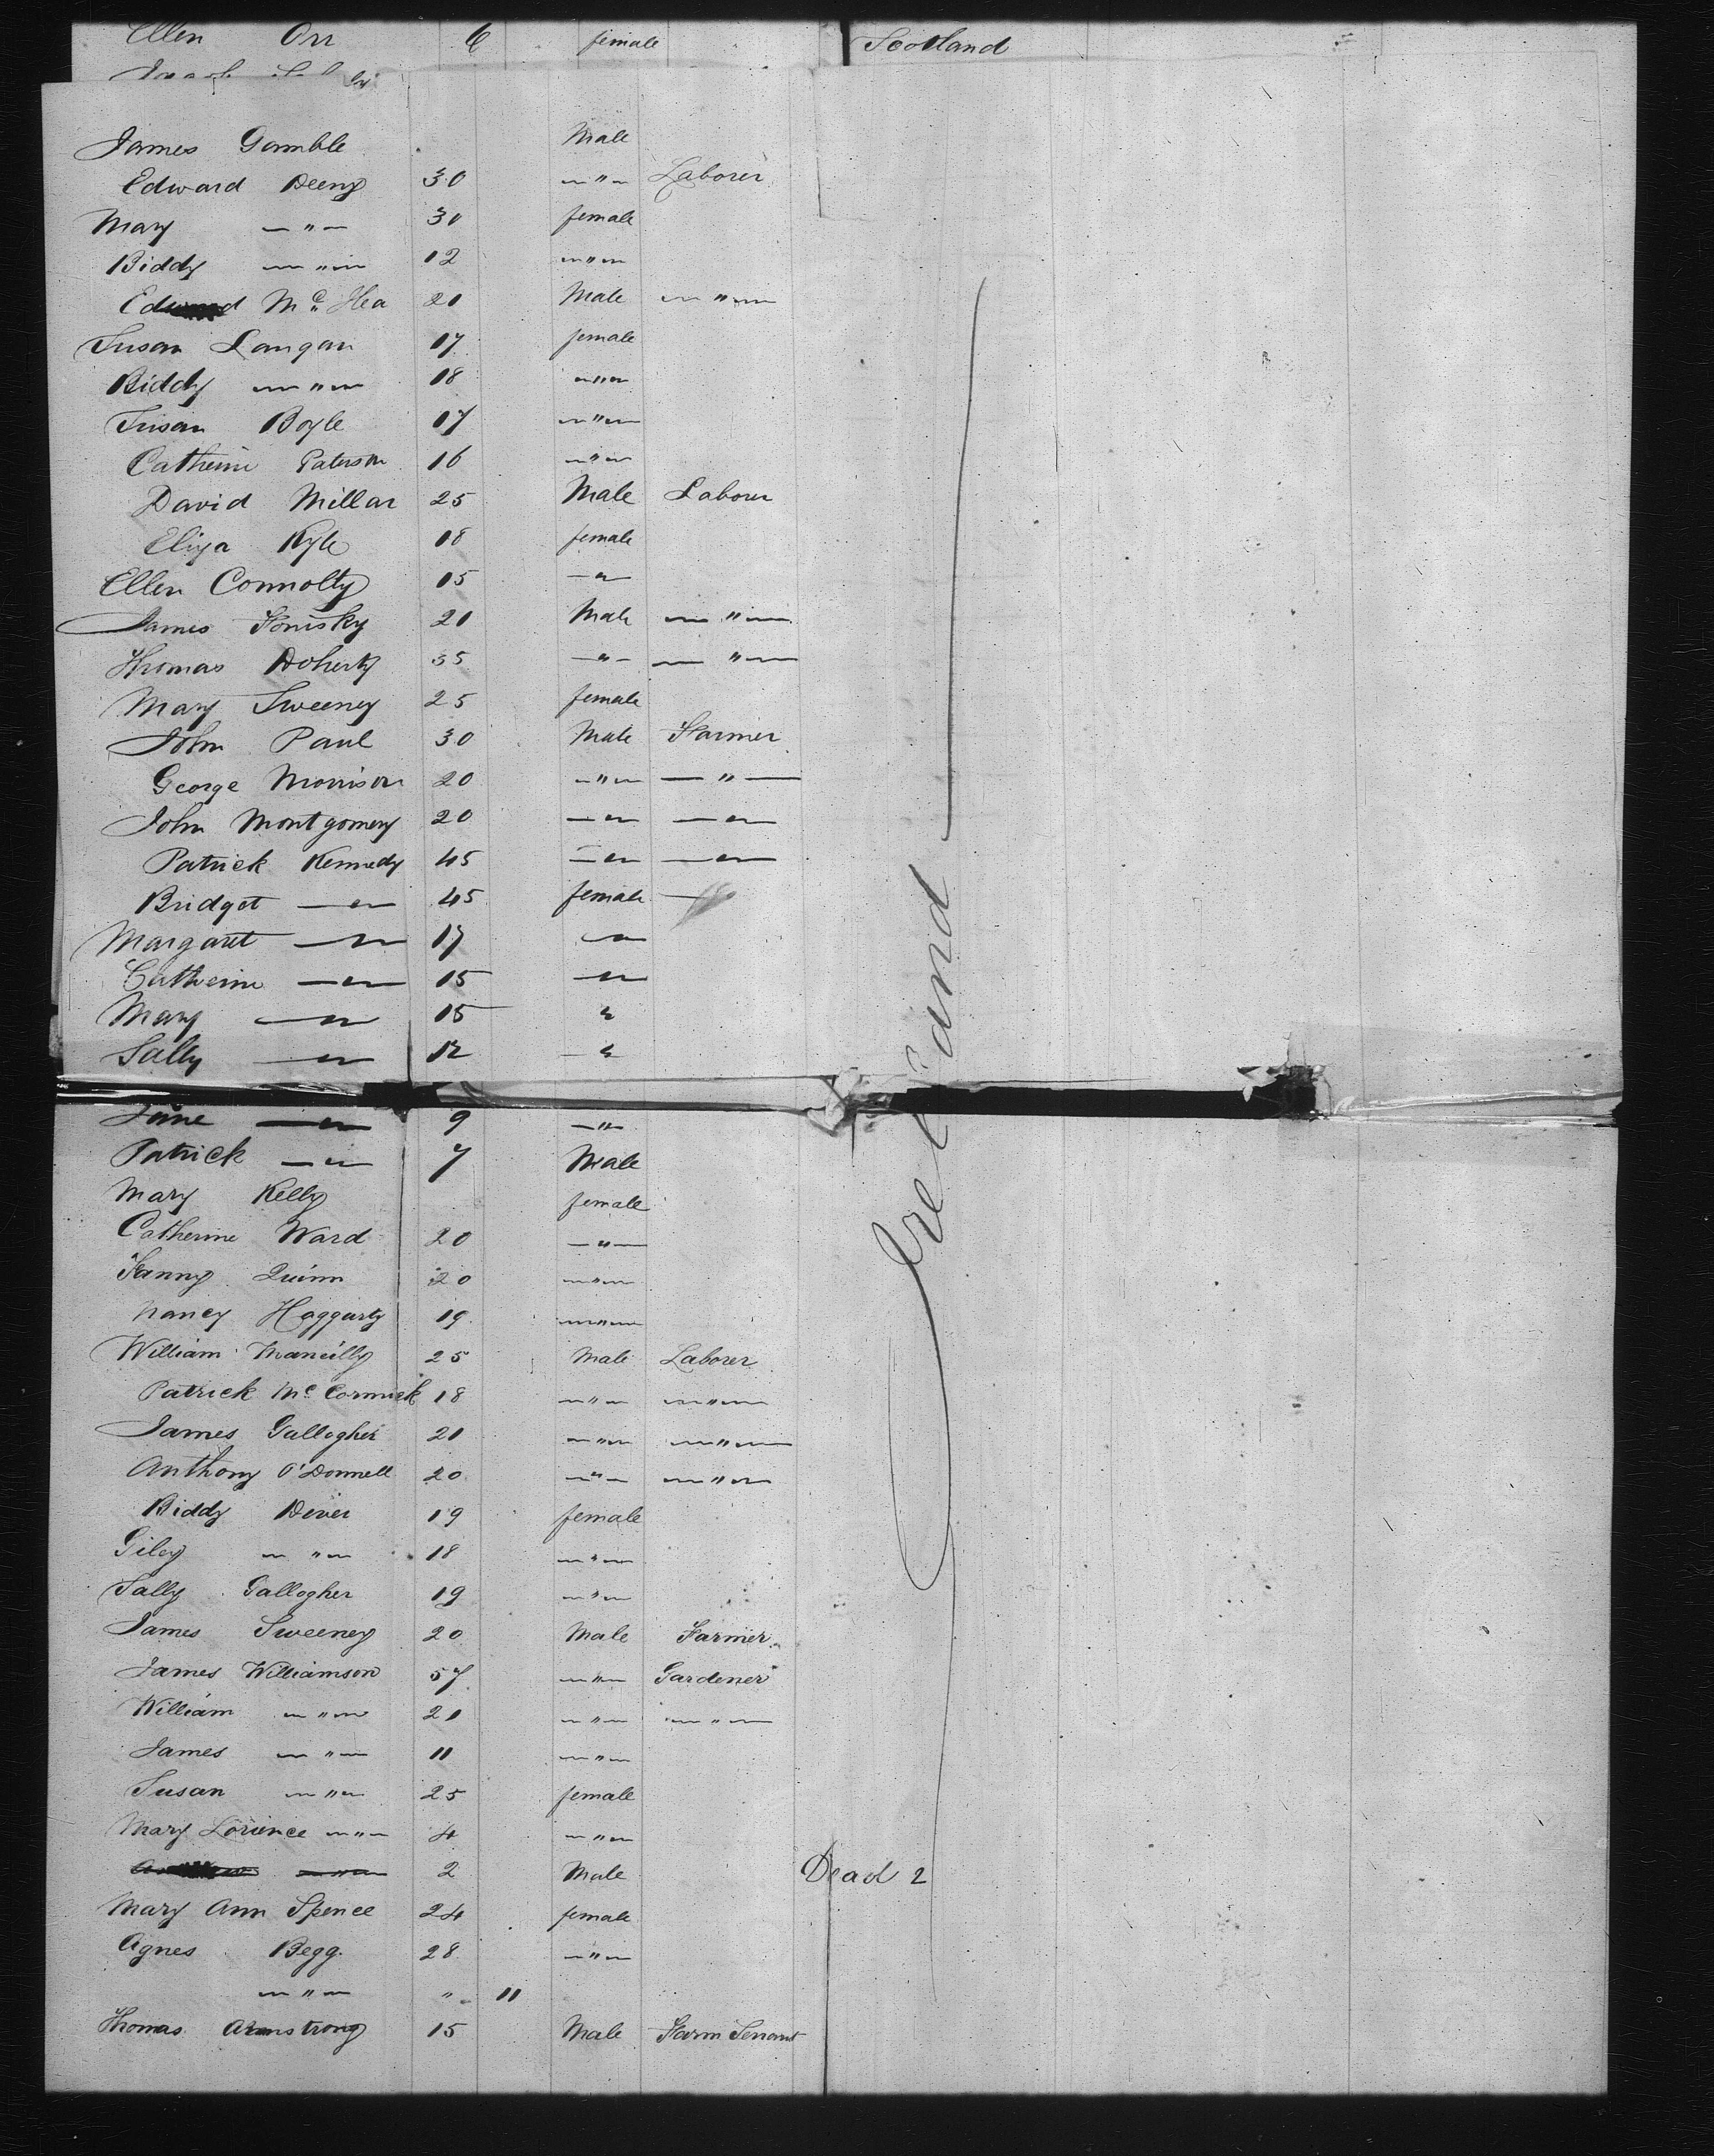 Ellen Orr 6 female Scotland
James Gamble Male
Edward Deeny 30 — " — Laborer
Mary — " — 30 female
Biddy — " — 12 — " —
Edward Mc Hea 20 Male — " —
Susan Langan 17 female
Biddy — " — 18 — " —
Susan Boyle 17 — " —
Catherine Paterson 16 — " —
David Millar 25 Male Laborer
Eliza Kyle 18 female
Ellen Connolly 15 — " —
James 20 Male — " —
Thomas Doherty 35 — " — — " —
Mary Sweeney 25 female
John Paul 30 Male Farmer
George Morrison 20 — " — — " —
John Montgomery 20 — " — — " —
Patrick Kennedy 45 — " — — " —
Bridget — " — 45 female
Margaret — " — 17 — " —
Catherine — " — 15 — " —
Mary — " — 15 "
Sally — " — 12 — "
Ireland
Jane — " — 9 — " —
Patrick — " — 7 Male
Mary Kelly female
Catherine Ward 20 — " —
Fanny Quinn 20 — " —
Nancy Haggarty 19 — " —
William 25 Male Laborer
Patrick Mc Cormick 18 — " — — " —
James Gallogher 20 — " — — " —
Anthony O'Donnell 20 — " — — " —
Biddy Dever 19 female
Giley — " — 18 — " —
Sally Gallogher 19 — " —
James Sweeney 20 Male Farmer
James Williamson 57 — " — Gardener
William — " — 20 — " — — " —
James — " — 11 — " —
Susan — " — 25 female
Mary Lorience — " — 4 — " —
— " — 2 Male Dead 2
Mary Ann Spence 24 female
Agnes Begg. 28 — " —
— " — " 11
Thomas Armstrong 15 Male Farm Servant